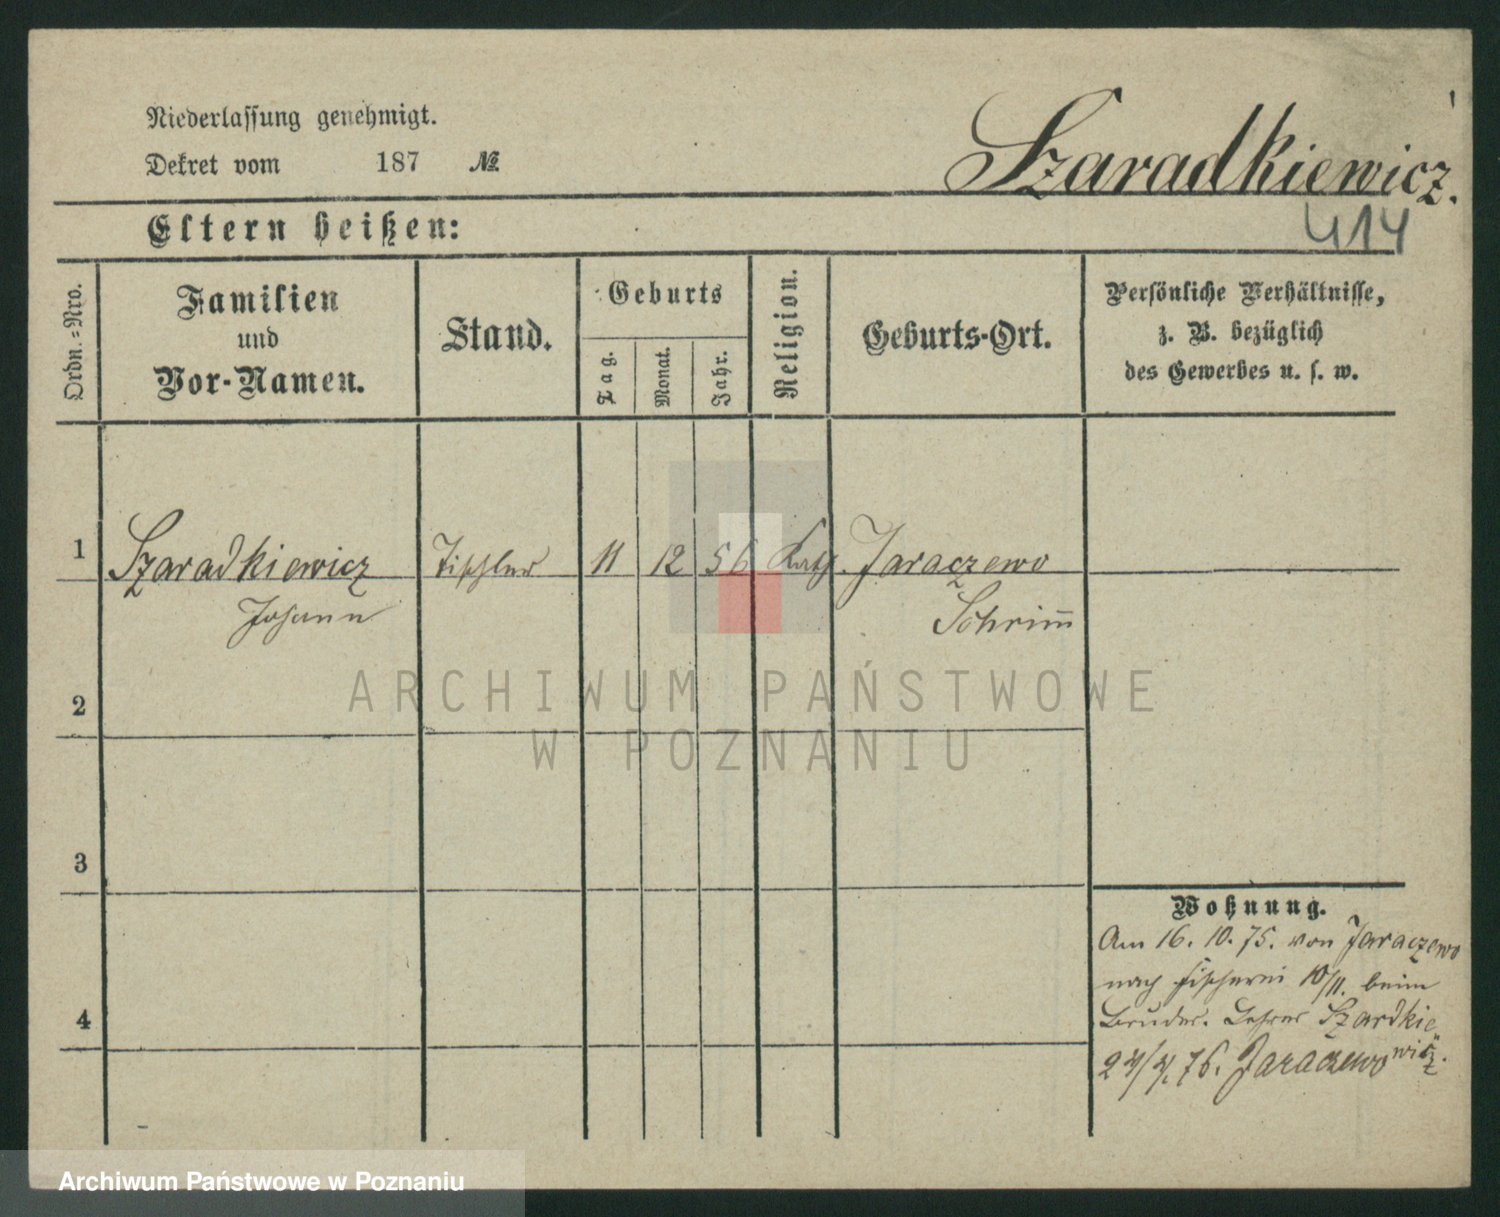 Niederlassung genehmigt.
Dekret vom 187 №
Szaradkiewicz.
414
Eltern heißen:
Ordn.-Nro.
Familien
und
Vor-Namen.
Stand.
Geburts
Tag.
Monat.
Jahr.
Religion.
Geburts-Ort.
Persönliche Verhältnisse,
z. B. bezüglich
des Gewerbes u. s. w.
1 Szaradkiewicz Tischler 11 12 56 Kath. Jaraczewo
Johann Schrim̅
2
3
4
Wohnung.
Am 16. 10. 75. von Jaraczewo
nach Fischerei 10/11. beim
Bruder. Lehrer Szardkie
wicz.
76. Jaraczewo
ARCHIWUM PAŃSTWOWE
W POZNANIU
Archiwum Państwowe w Poznaniu